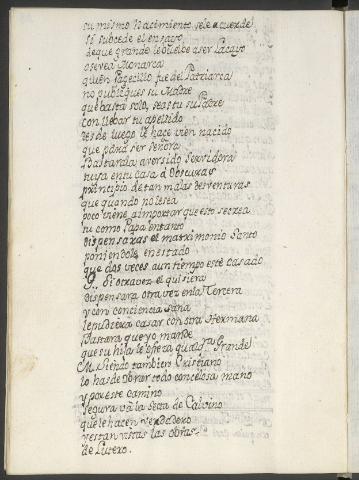 su mismo Nacimiento se le acuerde
si subcede el ensayo
de que grande le buelbe a ser Lacayo
o se vea Monarca
quien Pagecillo fue del Patriarca
no publiques su Madre
que basta solo, seas tu su Padre
con llebar tu apellido
desde luego le hace vien nacido
que para ser señora
Bastarala aver sido Servidora
tuya en tu Casa á obscuras
principio de tan malas desventuras
que quando no lo sea
poco viene a importar que esto se crea
tu como Papa en tanto
dispensaras el matrimonio Santo
poniendole en estado
que dos veces a un tiempo esté Casado
Y si otra vez el quisiera
dispensara otra vez en la Tercera
y con conciencia sana
le pudiera casar con otra Hermana
Bastara que yo mande
que su hijo le ofrezca qualq.r Grande
M. siendo tambien Cristiano
lo has de obrar todo con celosa mano
y por este camino
segura va la Secta de Calvino
que le hacen verdadero
y estan vistas las obras
de Lutero.